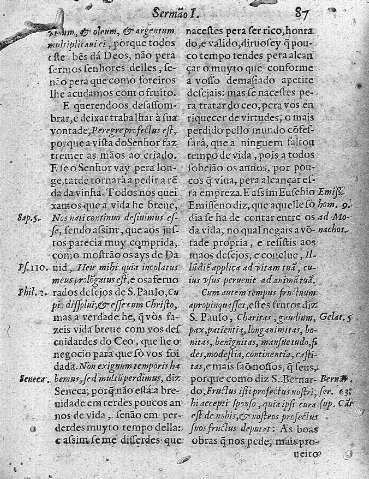 Sermão I. 87
& oleum, & argentum
multiplicavi ei, porque todos
este bẽs dá Deos, não pera
sermos senhores delles, se-
não pera que como foreiros
lhe acudamos com o fruito.
E querendoos desassom-
brar, e deixar trabalhar à sua
vontade, Peregre profectus est,
porque a vista do Senhor faz
tremer as mãos ao criado.
E se o Senhor vay pera lon-
ge, tarde tornará a pedir a rẽ
da da vinha. Todos nos quei-
xamos que a vida he breve,
Sap. 5. Nos nati continuo desivimus es-
se, sendo assim, que aos jus-
tos parecia muy comprida,
como mostrão os ays de Da-
Ps. 110. uid, Heu mihi quia incolatus
meus prolõgatus est, e os afer-
Phil. 2. rados desejos de S. Paulo, Cu
pio dissolui, & esse cum Christo,
mas a verdade he, q̃ vòs fa-
zeis vida breve com vos des
cuidardes do Ceo, que he o
negocio para que só vos foi
dada. Non exiguum temporis ha
Seneca. bemus, sed multũ perdimus, diz
Seneca, porq̃ não està a bre-
uidade em terdes poucos an
nos de vida, senão em per-
derdes muyto tempo della:
e assim se me disserdes que
nacestes pera ser rico, honra
do, e valido, diruosey q̃ pou-
co tempo tendes pera alcan
çar o muyto que conforme
a vosso demasiado apetite
desejais: mas se nacestes pe
ra tratar do ceo, pera vos en
riquecer de virtudes, o mais
perdido pello mundo cõfes-
sará, que a ninguem faltou
tempo de vida, pois a todos
sobejão os annos, por pou-
cos q̃ viva, pera alcançar es-
ta empreza. E assim Eusebio Emiss.
Emisseno diz, que aquelle só hom. 9.
dia se ha de contar entre os ad Mo-
da vida, no qual negais a võ nachos.
tade propria, e resistis aos
maos desejos, e conclue, Il-
la die applica ad vitam tuã,
Cum autem tempus fructuum
apropinquasset, estes frutos diz
S. Paulo, Charitas, gaudium, Galat. 5
pax, patientia, longanimitas, bo-
nitas, benignitas, mansuetudo, fi
des, modestia, continentia, casti-
tas, e mais saõ nossos, q̃ seus,
porque como diz S. Bernar- Bern.
do, Fructus isti profectus nostri, ser. 63
hi accepti sponso, quia ipsi cura sup. Cãt
est de nobis, & nostros profectus
suos fructus deputat: As boas
obras q̃ nos pede, mais pro-
ueito